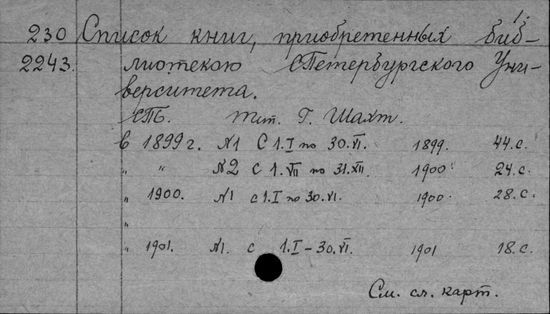 13
230 Список книг, приобретенных биб-
2243. лиотекою СПетербургского Уни-
верситета.
СПб. тип. Г. Шахт.
в 1899 г. №1 С 1.I по 30.VI. 1899. 44.с.
" " №2 с 1.VII по 31.XII. 1900. 24.с.
" 1900. №1 с 1.I по 30.VI. 1900. 28.с.
"
" 1901. №1. с 1.I – 30.VI. 1901 18.с.
См. сл. карт.